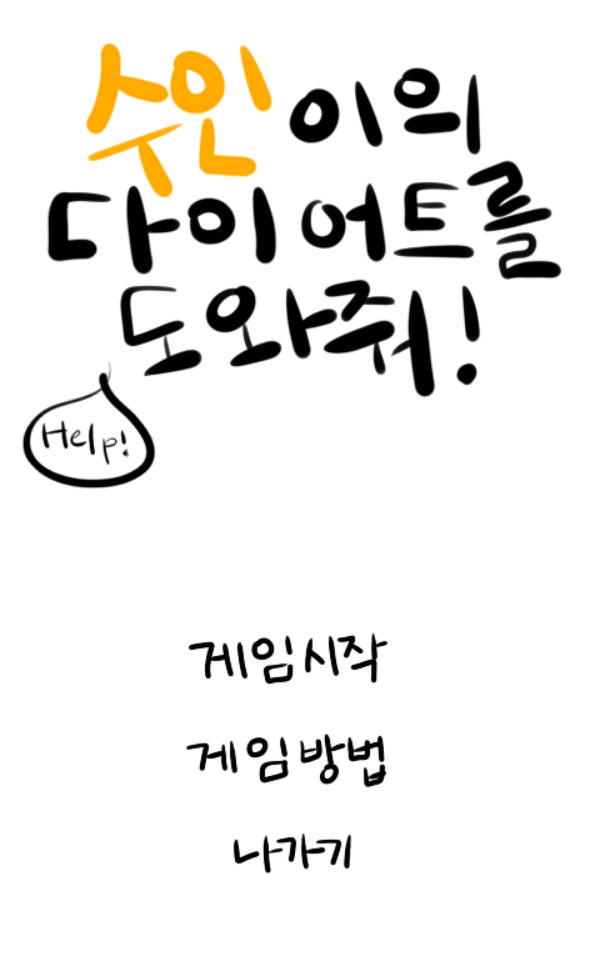 수인이의
다이어트를
도와줘!
Help!
게임시작
게임방법
나가기